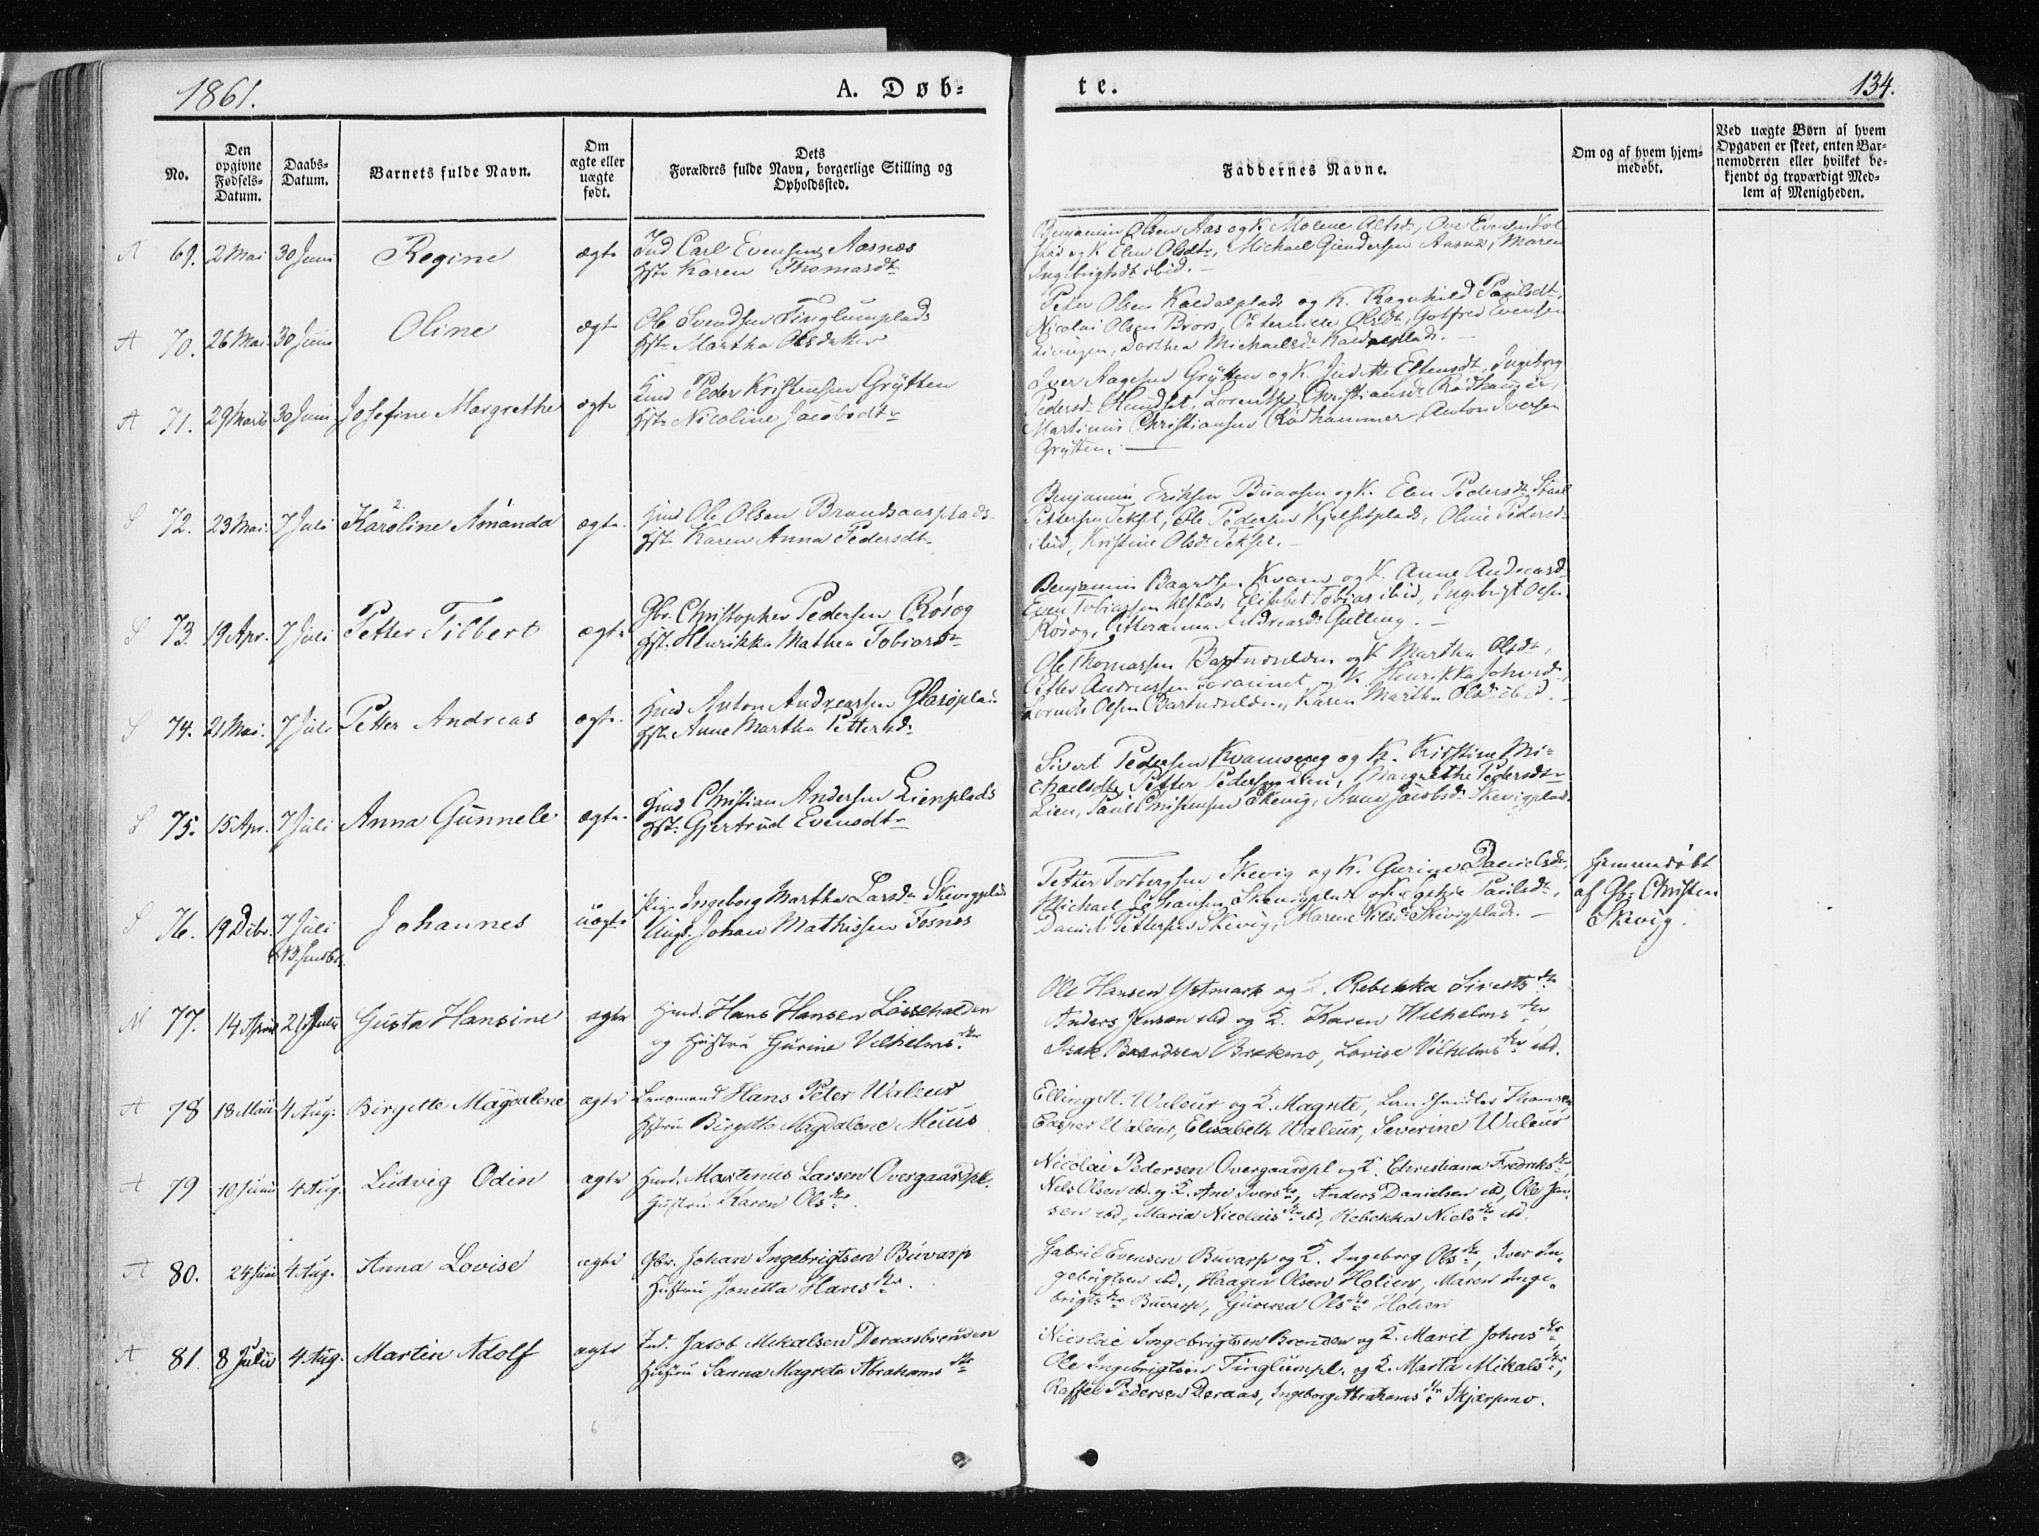 1861.
A. Døb-
te.
134.
No.
Den opgivne Fødsels-Datum.
Daabs-Datum.
Barnets fulde Navn.
Om ægte eller uægte født.
Dets Forældres fulde Navn, borgerlige Stilling og Opholdssted.
Faddernes Navne.
Om og af hvem hjem-
medøbt.
Ved uægte Børn af hvem
Opgaven er skeet, enten Bar-
nemoderen eller hvilket be-
kjendt og troværdigt Med-
lem af Menigheden.
A 69. 2 Mai 30 Juni Regine ægte Ind Carl Evensen Aasnæs
Hst. Karen Thomasdt.
Benjamin Olsen Aas og K. Molene Olsd., Ove Evensen
og K. Elen Olsdt., Michael Gundersen Aasnæs, Maren
Ingebrigtsdt ibid. —
A 70. 26 Mai 30 Juni Oline ægte Ole Svendsen Tinglumplads
Hst. Martha Olsdatter
Peter Olsen Kaldalplads og K. Ragnhild Paulsdt.,
Nicolai Olsen Brørs, Olsdt., Gotfred Evensen
Dorthea Michaelsdt. Kaldalplads. —
A 71. 29 Marts 30 Juni Josefine Margrethe ægte Hmd Peder Kristensen Grytten
Hst. Nicoline Jacobsdt.
Iver Aagesen Grytten og K. Judithe Eltensdt., Ingeborg
Pedersd. Hundset, Christiansd. Rødhammer,
Martinus Christiansen Rødhammer, Anton Iversen
Grytten. —
S 72. 23 Mai 7 Juli Karoline 2. Amanda ægte. Hmd Ole Olsen Brandsaasplads
Hst. Karen Anna Pedersdt.
Benjamin Eriksen Buaasen og K. Elen Pedersdt.
Pettersen Tekset, Ole Pedersen Kjelsetplads, Oline Pedersd.
ibid, Kristine Olsd. Tekset. —
S 73. 19 Apr. 7 Juli Petter Tilbert ægte. Gbr. Christopher Pedersen Røsøg
Hst. Henrikka Mathea Tobiasd.
Benjamin Baardsen Kvam og K. Anne Andreasd.
Even Tobiassen Elisabet Tobiasd ibid, Ingebrigt Olsen
Røsøg, Petteranna Andreasd. —
S 74. 21 Mai. 7 Juli Petter Andreas ægte. Hmd Anton Andreassen Glasøplads
Hst. Anne Martha Pettersd.
Ole Thomassen og K. Martha Olsdt.,
Petter Andreassen og K. Henrikka Johnsd.
Lorents Olsen Karen Martha Olsd. ibid. —
S 75. 15 Apr. 7 Juli Anna Gunnele ægte. Hmd Christian Andersen Lienplads
Hst. Gjertrud Evensdt.
Sivert Pedersen Kvamseng og K. Kirstine Mi-
chaelsdt., Petter Pedersen Lien, Margrethe Pedersdt.
Lien, Paul Christensen Skevig, Anne Jacobsd. Skevigplads.
S 76. 19 Debr. 7 Juli Johannes uægte Pige Ingeborg Martha Larsd. Skevigplads
Ungk. Johan Mathissen Fosnæs
Petter Torbergsen Skevig og K. Gurine Danielsd.,
Michael Johansen Skevigplads og K. Paulsdt.,
Daniel Pettersen Skevig, Maren Nilsd. Skevigplads. —
hjemmedøbt
af Gbr. Christen
Skevig.
N 77. 14 April 21 Juli Gusta Hansine ægte Hmd. Hans Hansen Løsseholden
og Hustru Gurine Vilhelms dtr.
Ole Hansen Ystmark og K. Rebekka Siverts dtr
Anders Jensen ibd og K. Karen Wilhelms dtr
Isak Brekmo, Lovise Vilhelms dtr ibd.
A 78 18 Mai 4 Aug. Birgette Magdalene ægte Hans Peter Waleur
Hstru Birgitte Magdalene Meuus
Elling M. Waleur og K. Magrete, Landhandler Thomsen
Casper Waleur, Elisabeth Waleur, Severine Waleur
A 79 10 Juni 4 Aug. Ludvig Odin ægte Hmd. Martinus Larsen Overgaardpl.
Hustru Karen Ols dtr.
Nicolai Pedersen Overgaardspl og K. Christiana Fredriks dtr,
Nels Olsen ibd. og K. Ane Ivers dtr, Anders Danielsen ibd, Ole Jen-
sen ibd, Maria Nicolais dtr ibd, Rebekka Niels dtr ibd.
A 80. 24 Juni 4 Aug. Anna Lovise ægte Gbr. Johan Ingebrigtsen Buvarp
Hustru Jonetta Hans dtr.
Gabriel Evensen Buvarp og K. Ingeborg Ols dtr, Iver In-
gebrigtsen ibd., Haagen Olsen Holien, Maren Inge-
brigts dtr Buvarp, Gurina Ols dtr Holien
A 81. 8 Juli 4 Aug. Martin Adolf ægte Ind. Jacob Mikalsen Deraasbrenden
Hustru Sanna Magreta Abrahams dtr
Nicolai Ingebrigtsen Brenden og K. Marit Johns dtr,
Ole Ingebrigtsen Tinglumpl. og K. Marta Mikals dtr,
Raffel Pedersen Deraas, Ingeborg Abrahams dtr Skjærpmo.